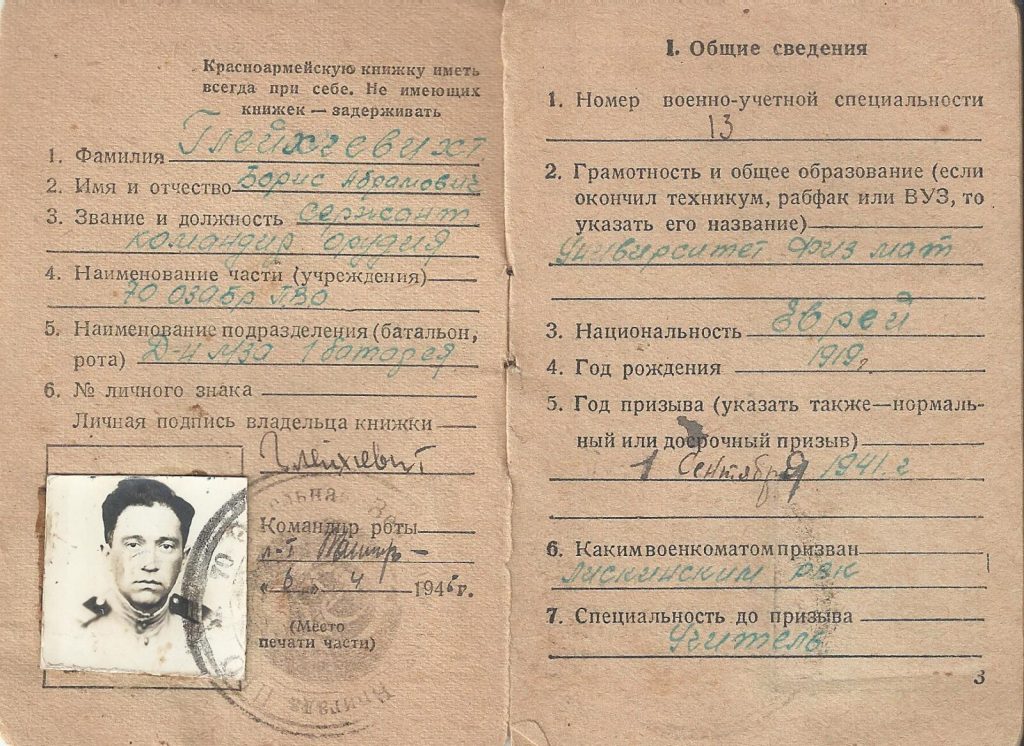 Красноармейскую книжку иметь
всегда при себе. Не имеющих
книжек — задерживать
1. Фамилия Глейхгевихт
2. Имя и отчество Борис Абрамович
3. Звание и должность Сержант
командир орудия
4. Наименование части (учреждения)
70 ОЗАбр ПВО
5. Наименование подразделения (батальон,
рота) Д-н МЗА 1 батарея
6. № личного знака
Личная подпись владельца книжки
Командир роты
л-т
„6„ 4 1945г.
(Место
печати части)
I. Общие сведения
1. Номер военно-учетной специальности
13
2. Грамотность и общее образование (если
окончил техникум, рабфак или ВУЗ, то
указать его название)
Университет Физ мат
3. Национальность Еврей
4. Год рождения 1919г.
5. Год призыва (указать также—нормаль-
ный или досрочный призыв)
1 Сентября 1941 г
6. Каким военкоматом призван
Лискинским рвк
7. Специальность до призыва
Учитель
3